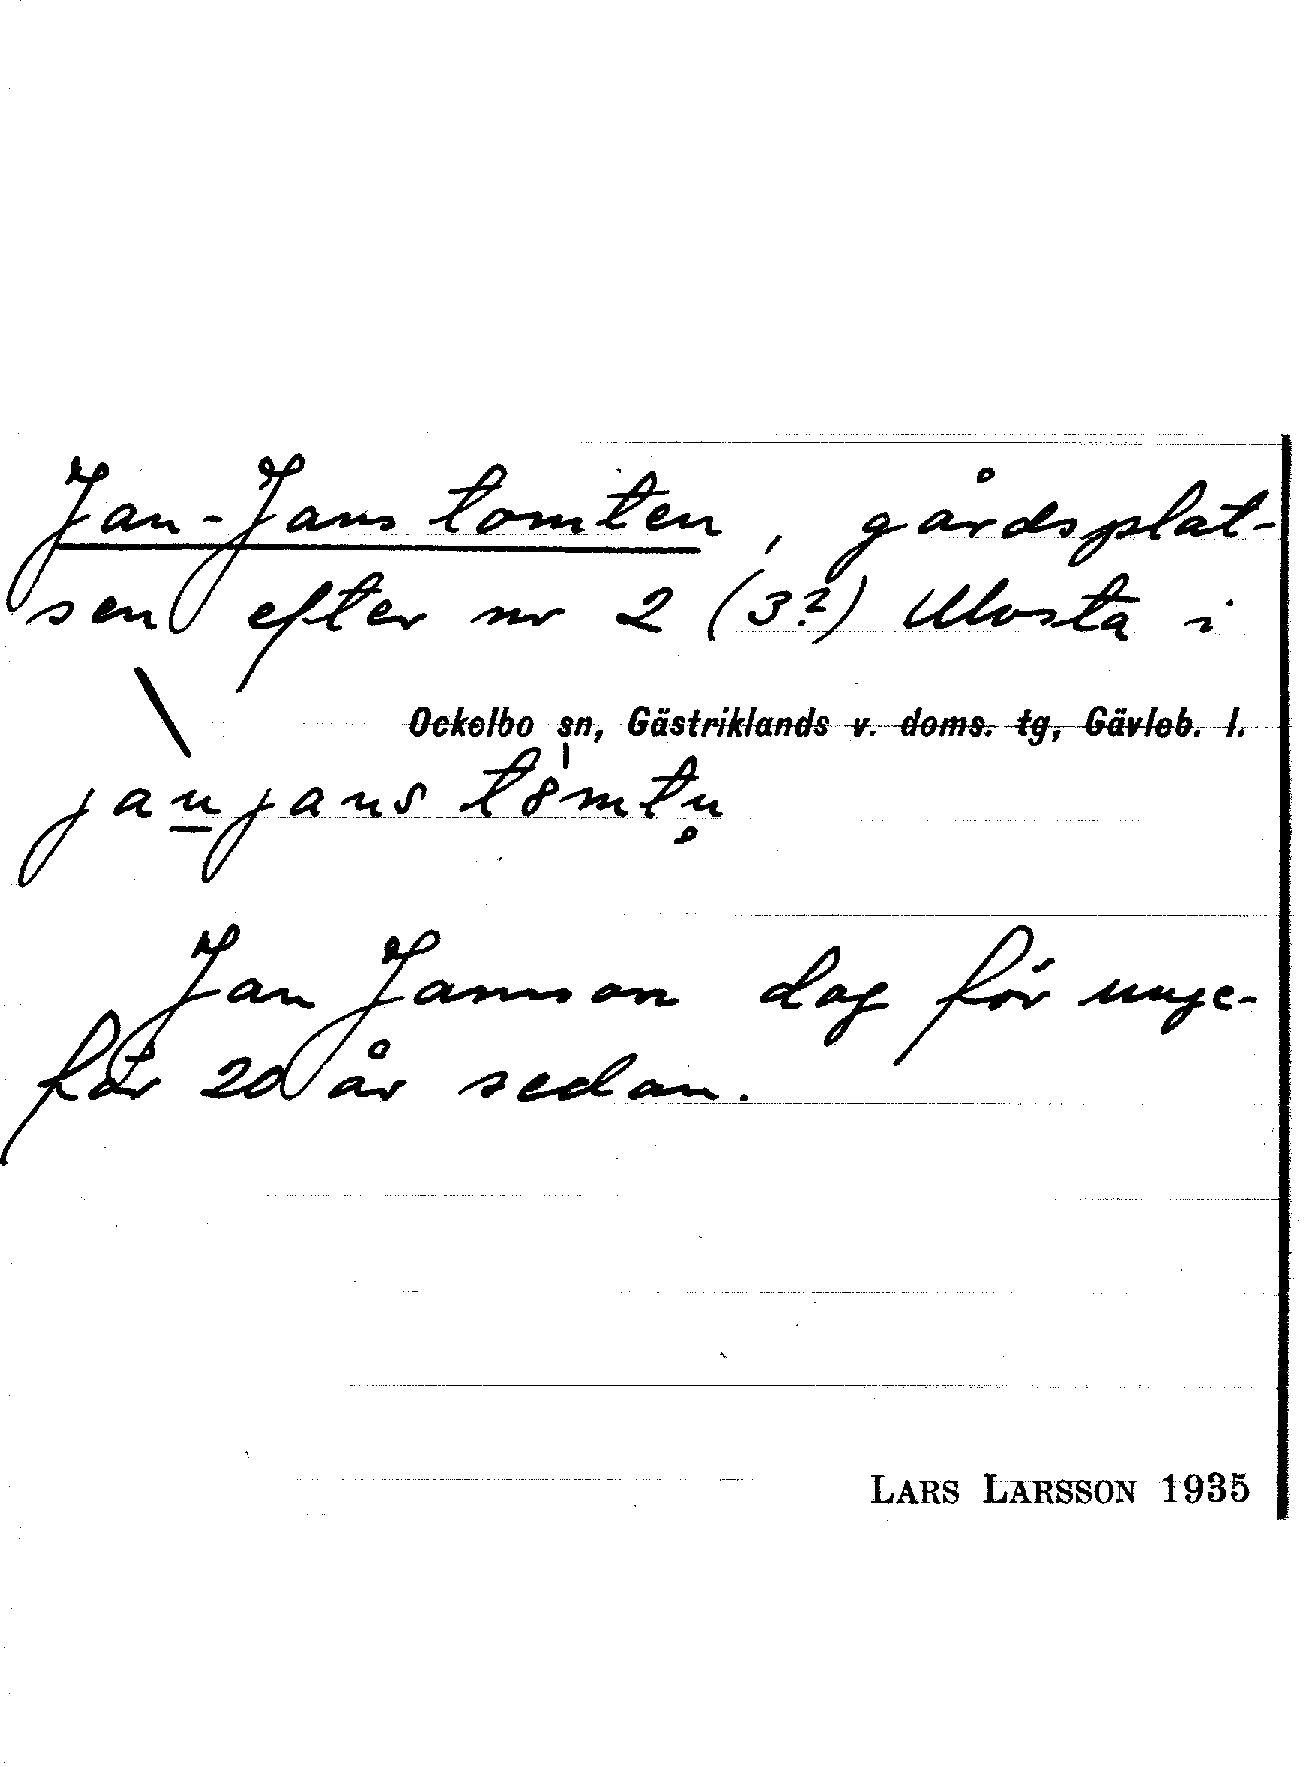 Jan-Jans tomten, gårdsplat-
sen efter nr 2 (3?) Ulvsta i
Ockelbo sn, Gästriklands v. doms. tg, Gävleb. l.
Jan Jansson dog för unge-
fär 20 år sedan.
LARS LARSSON 1935